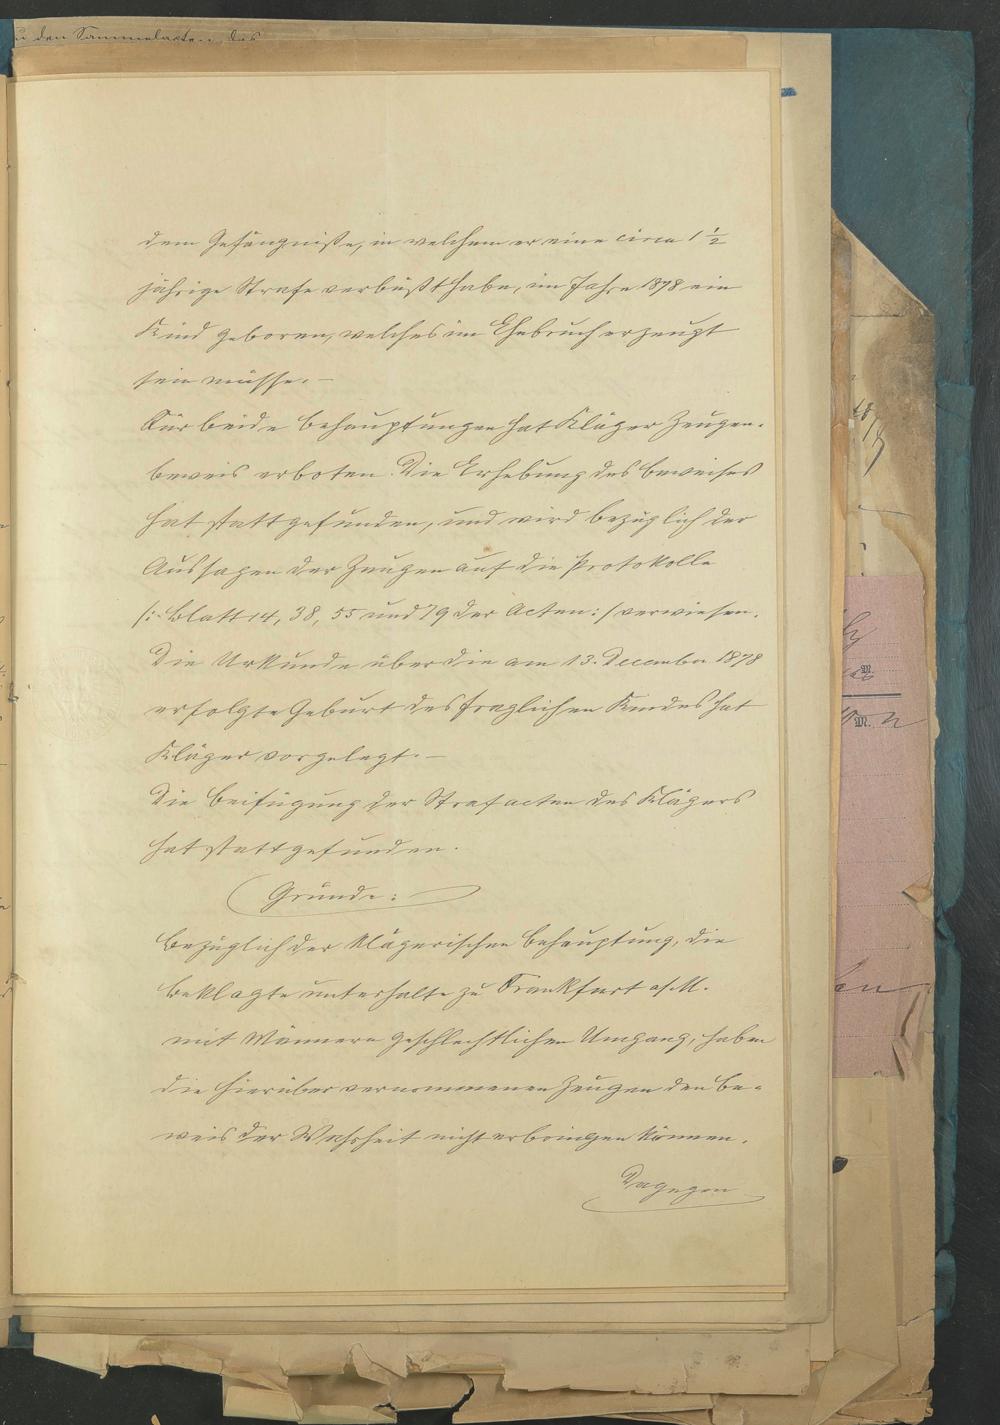 zu den Sammelakten des
dem Gefängniße, in welchem er eine circa 1 ½
jährige Strafe verbüßt habe, im Jahre 1878 ein
Kind geboren, welches im Ehebruch erzeugt
sein müsse. –
Für beide Behauptungen hat Kläger Zeugen-
beweis erboten. Die Erhebung des Beweises
hat stattgefunden, und wird bezüglich der
Aussagen der Zeugen auf die Protokolle
/:Blatt 14, 38, 55 und 79 der Acten:/ verwiesen.
Die Urkunde über die am 13. December 1878
erfolgte Geburt des fraglichen Kindes hat
Kläger vorgelegt. –
Die Beifügung der Strafacten des Klägers
hat stattgefunden.
Gründe:
Bezüglich der klägerischen Behauptung, die
Beklagte unterhalte zu Frankfurt a/M.
mit Männern geschlechtlichen Umgang, haben
die hierüber vernommenen Zeugen den Be-
weis der Wahrheit nicht erbringen können.
Dagegen
M.
M.